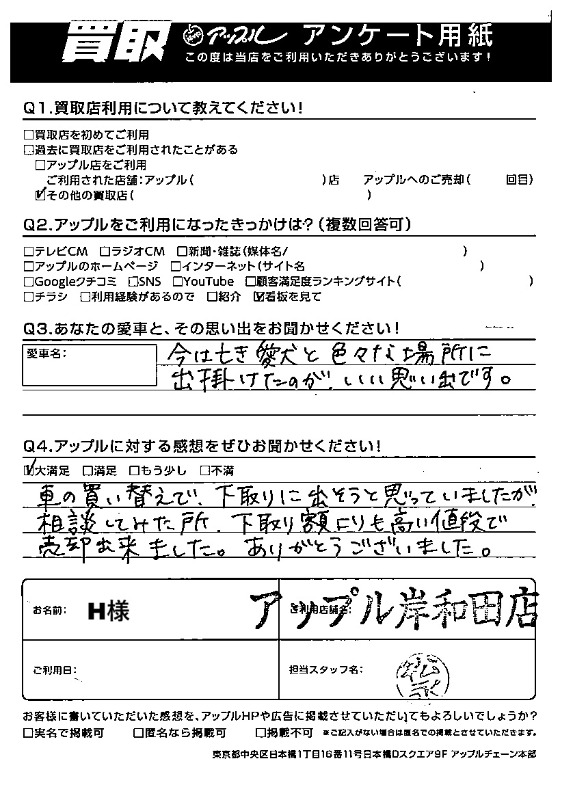 買取 アップル アンケート用紙
この度は当店をご利用いただきありがとうございます！
Q1.買取店利用について教えてください！
□買取店を初めてご利用
□過去に買取店をご利用されたことがある
□アップル店をご利用
ご利用された店舗：アップル（　）店　アップルへのご売却（　回目）
☑その他の買取店（　）
Q2.アップルをご利用になったきっかけは？（複数回答可）
□テレビCM □ラジオCM □新聞・雑誌（媒体名/　）
□アップルのホームページ □インターネット（サイト名　）
□Googleクチコミ □SNS □YouTube □顧客満足度ランキングサイト（　）
□チラシ □利用経験があるので □紹介 ☑看板を見て
Q3.あなたの愛車と、その思い出をお聞かせください！
愛車名：
今は亡き愛犬と色々な場所に
出掛けたのが、いい思い出です。
Q4.アップルに対する感想をぜひお聞かせください！
☑大満足 □満足 □もう少し □不満
車の買い替えで、下取りに出そうと思っていましたが、
相談してみた所、下取り額よりも高い値段で
売却出来ました。ありがとうございました。
お名前： H様
ご利用店舗名： アップル岸和田店
ご利用日：
担当スタッフ名：
お客様に書いていただいた感想を、アップルHPや広告に掲載させていただいてもよろしいでしょうか？
□実名で掲載可 □匿名なら掲載可 □掲載不可 ※ご記入がない場合は匿名での掲載とさせていただきます。
東京都中央区日本橋1丁目16番11号日本橋Dスクエア9F アップルチェーン本部